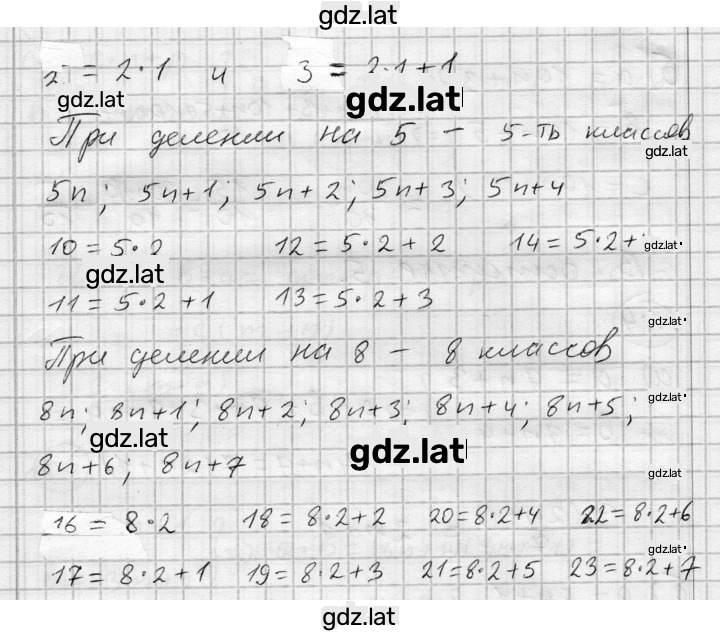 gdz.lat
2 = 2·1 и 3 = 2·1+1
gdz.lat
gdz.lat
При делении на 5 – 5-ть классов
gdz.lat
5n; 5n+1; 5n+2; 5n+3; 5n+4
10 = 5·2 12 = 5·2+2 14 = 5·2+
gdz.lat
gdz.lat
11 = 5·2+1 13 = 5·2+3
gdz.lat
При делении на 8 – 8 классов
gdz.lat
8n; 8n+1; 8n+2; 8n+3; 8n+4; 8n+5;
gdz.lat
gdz.lat
8n+6; 8n+7
gdz.lat
16 = 8·2 18 = 8·2+2 20=8·2+4 22=8·2+6
gdz.lat
17 = 8·2+1 19 = 8·2+3 21=8·2+5 23=8·2+7
gdz.lat